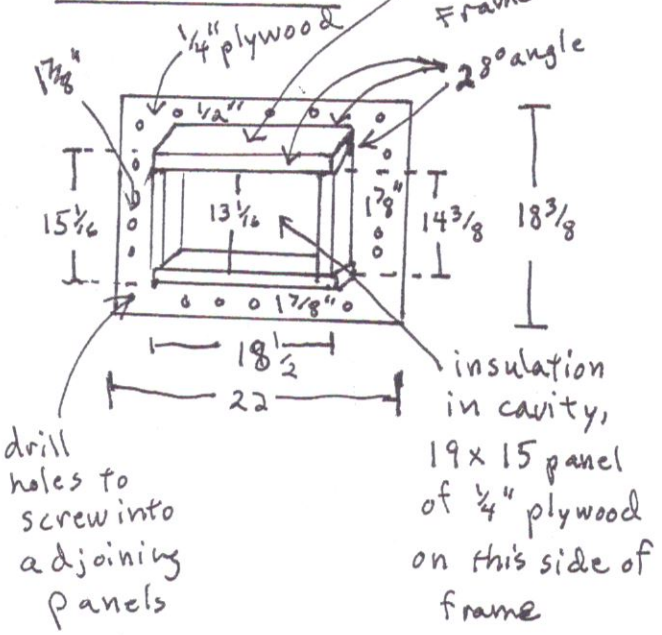 Frame
1/4" plywood
28° angle
1 7/8"
1/2"
15 1/16
13 1/16
1 7/8"
14 3/8
18 3/8
1 7/8"
18 1/2
22
drill
holes to
screw into
adjoining
panels
insulation
in cavity,
19 x 15 panel
of 1/4" plywood
on this side of
frame